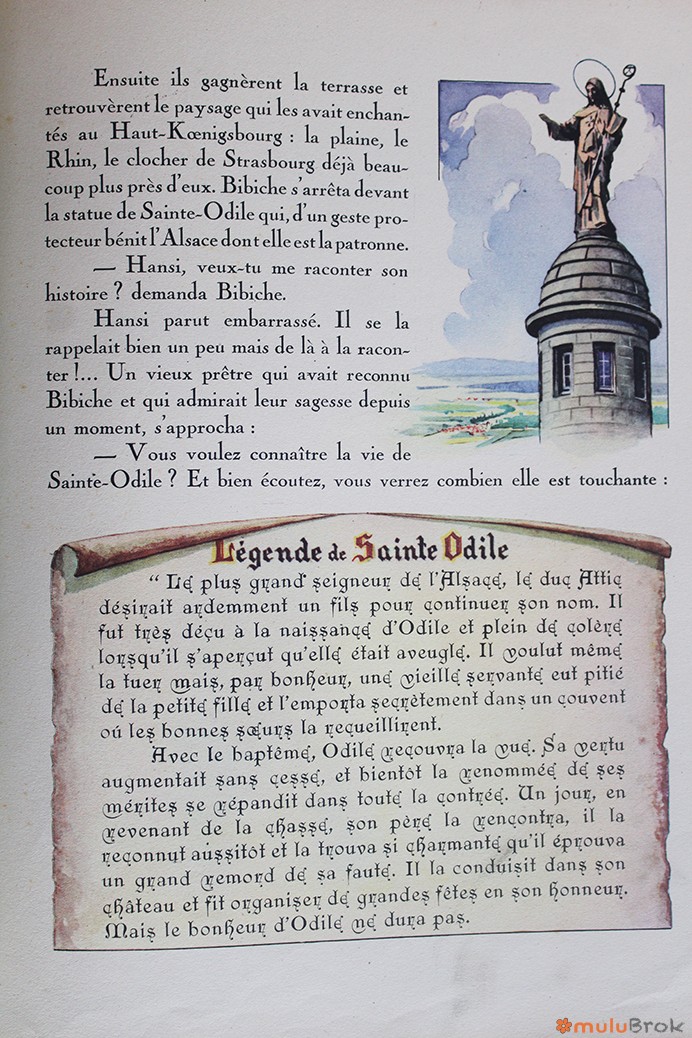 Ensuite ils gagnèrent la terrasse et
retrouvèrent le paysage qui les avait enchan-
tés au Haut-Kœnigsbourg : la plaine, le
Rhin, le clocher de Strasbourg déjà beau-
coup plus près d'eux. Bibiche s'arrêta devant
la statue de Sainte-Odile qui, d'un geste pro-
tecteur bénit l'Alsace dont elle est la patronne.
— Hansi, veux-tu me raconter son
histoire ? demanda Bibiche.
Hansi parut embarrassé. Il se la
rappelait bien un peu mais de là à la racon-
ter !... Un vieux prêtre qui avait reconnu
Bibiche et qui admirait leur sagesse depuis
un moment, s'approcha :
— Vous voulez connaître la vie de
Sainte-Odile ? Et bien écoutez, vous verrez combien elle est touchante :
Légende de Sainte Odile
“ Le plus grand seigneur de l'Alsace, le duc Attic
désirait ardemment un fils pour continuer son nom. Il
fut très déçu à la naissance d'Odile et plein de colère
lorsqu'il s'aperçut qu'elle était aveugle. Il voulut même
la tuer mais, par bonheur, une vieille servante eut pitié
de la petite fille et l'emporta secrètement dans un couvent
où les bonnes sœurs la recueillirent.
Avec le baptême, Odile recouvra la vue. Sa vertu
augmentait sans cesse, et bientôt la renommée de ses
mérites se répandit dans toute la contrée. Un jour, en
revenant de la chasse, son père la rencontra, il la
reconnut aussitôt et la trouva si charmante qu'il éprouva
un grand remord de sa faute. Il la conduisit dans son
château et fit organiser de grandes fêtes en son honneur.
Mais le bonheur d'Odile ne dura pas.
muluBrok